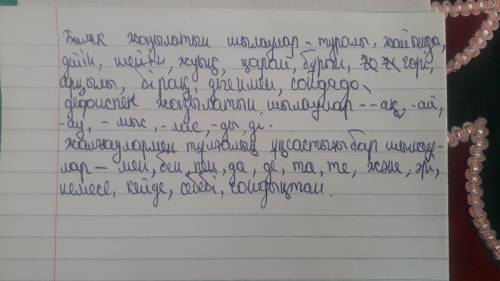 Бөлек жазылатын шылаулар - туралы, жайында,
дейін, шейін, жуық, қарай, бұрын, гөрі,
арқылы, бірақ, дегенмен, сондада.
дефиспен жазылатын шылаулар - -ақ, -ай,
-ау, -мыс, -міс, -ды, ді.
жалғаулармен тұлғалық ұқсастығы бар шылау-
лар - мен, бен, пен, да, де, та, те, және, әрі,
немесе, кейде, себебі, сондықтан.